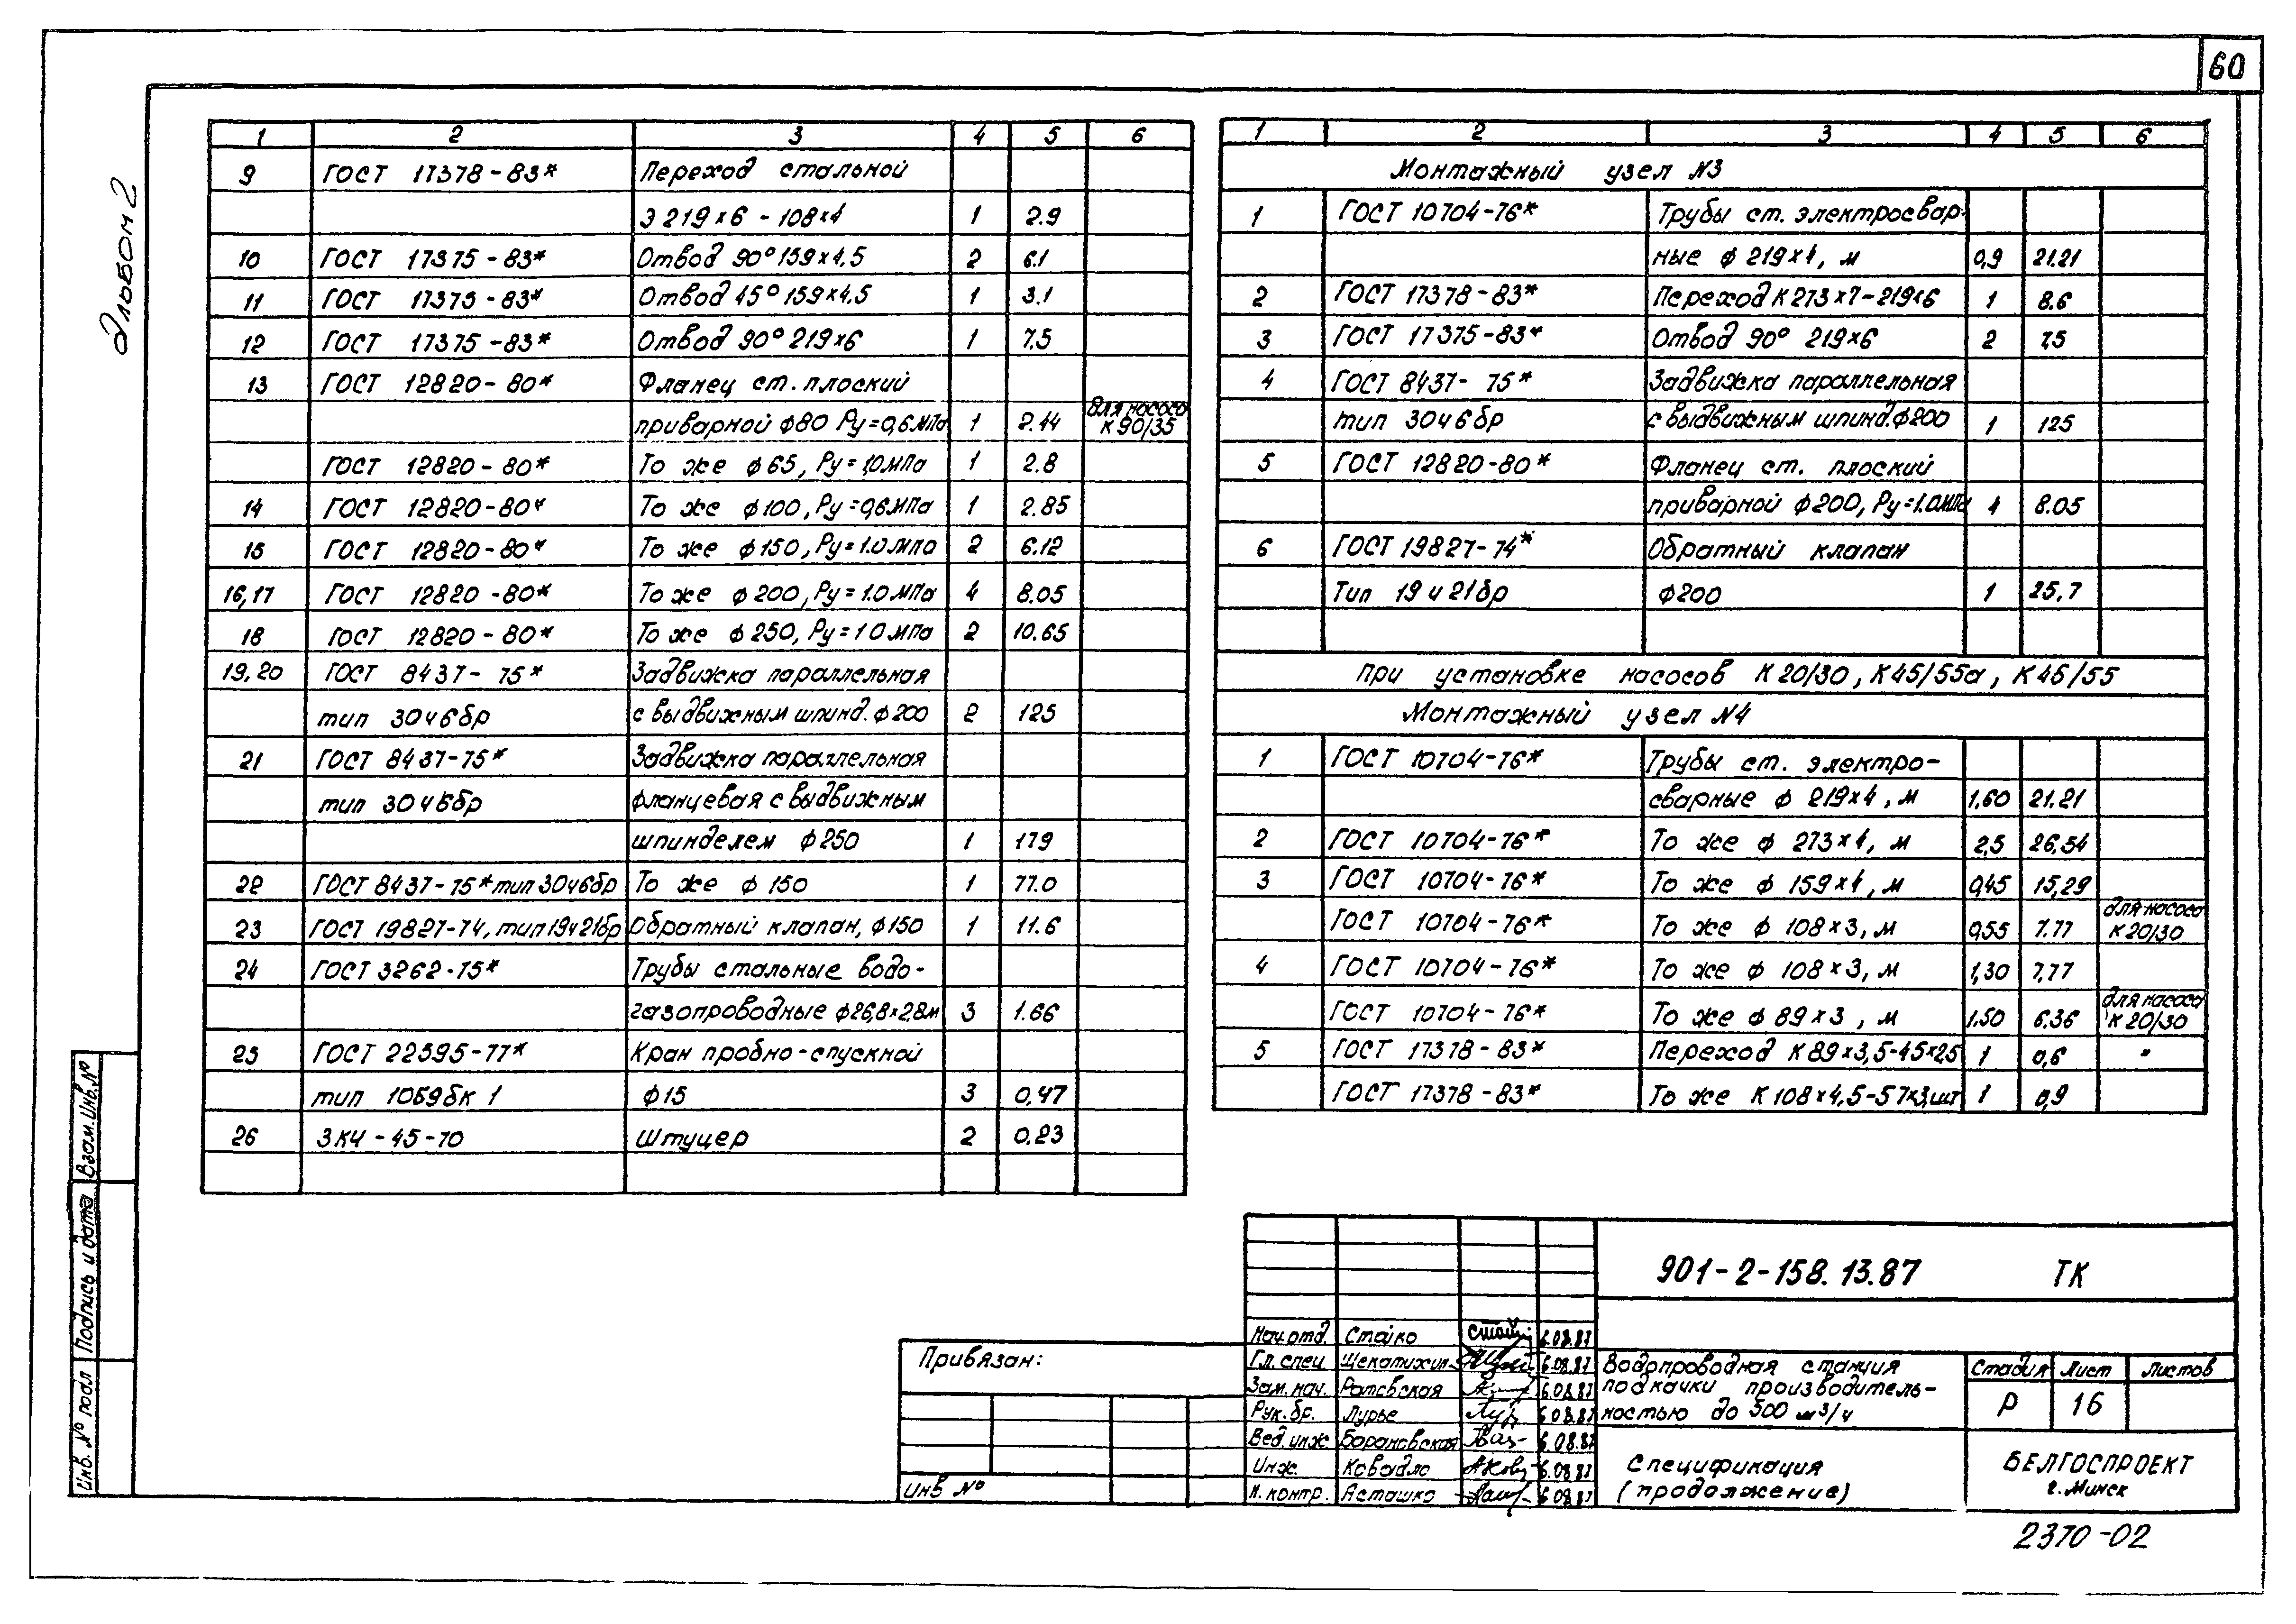 60
Альбом 2
1 2 3 4 5 6
9 ГОСТ 17378-83* Переход стальной
Э 219×6 - 108×4 1 2.9
10 ГОСТ 17375-83* Отвод 90° 159×4.5 2 6.1
11 ГОСТ 17375-83* Отвод 45° 159×4,5 1 3.1
12 ГОСТ 17375-83* Отвод 90° 219×6 1 7.5
13 ГОСТ 12820-80* Фланец ст. плоский
приварной ф80 Ру=0,6МПа 1 2.44 для насоса К 90/35
ГОСТ 12820-80* То же ф65, Ру=1,0МПа 1 2.8
14 ГОСТ 12820-80* То же ф100, Ру=0,6МПа 1 2.85
15 ГОСТ 12820-80* То же ф150, Ру=1.0МПа 2 6.12
16,17 ГОСТ 12820-80* То же ф200, Ру=1.0МПа 4 8.05
18 ГОСТ 12820-80* То же ф250, Ру=1.0МПа 2 10.65
19,20 ГОСТ 8437-75* Задвижка параллельная
тип 30ч6бр с выдвижным шпинд. ф200 2 125
21 ГОСТ 8437-75* Задвижка параллельная
тип 30ч6бр фланцевая с выдвижным
шпинделем ф250 1 179
22 ГОСТ 8437-75* тип 30ч6бр То же ф150 1 77.0
23 ГОСТ 19827-74, тип 19ч21бр Обратный клапан, ф150 1 11.6
24 ГОСТ 3262-75* Трубы стальные водо-
газопроводные ф26,8×2.8м 3 1.66
25 ГОСТ 22595-77* Кран пробно-спускной
тип 10Б9бк 1 ф15 3 0,47
26 ЗК4-45-70 Штуцер 2 0.23
1 2 3 4 5 6
Монтажный узел №3
1 ГОСТ 10704-76* Трубы ст. электросвар-
ные ф 219×4, м 0,9 21.21
2 ГОСТ 17378-83* Переход К 273×7-219×6 1 8.6
3 ГОСТ 17375-83* Отвод 90° 219×6 2 7,5
4 ГОСТ 8437-75* Задвижка параллельная
тип 30ч6бр с выдвижным шпинд. ф200 1 125
5 ГОСТ 12820-80* Фланец ст. плоский
приварной ф200, Ру=1.0МПа 4 8.05
6 ГОСТ 19827-74* Обратный клапан
Тип 19ч21бр ф200 1 25,7
при установке насосов К 20/30, К 45/55а, К 45/55
Монтажный узел №4
1 ГОСТ 10704-76* Трубы ст. электро-
сварные ф 219×4, м 1,60 21.21
2 ГОСТ 10704-76* То же ф 273×4, м 2,5 26,54
3 ГОСТ 10704-76* То же ф 159×4, м 0,45 15,29
ГОСТ 10704-76* То же ф 108×3, м 0,55 7.77 для насоса К 20/30
4 ГОСТ 10704-76* То же ф 108×3, м 1,30 7,77
ГОСТ 10704-76* То же ф 89×3, м 1.50 6.36 для насоса К 20/30
5 ГОСТ 17378-83* Переход К 89×3,5-45×2.5 1 0,6 "
ГОСТ 17378-83* То же К 108×4,5-57×3, шт 1 0,9
Инв. № подл Подпись и дата Взам. инв. №
Привязан:
Инв №
Нач. отд. Стайко 6.08.87
Гл. спец. Щекатихин 6.08.87
Зам. нач. 6.08.87
Рук. бр. Лурье 6.08.87
Вед. инж. Барановская 6.08.87
Инж. Ковадло 6.08.87
Н. контр. Асташко 6.08.87
901-2-158.13.87 ТК
Водопроводная станция
подкачки производитель-
ностью до 500 м³/ч
Стадия Лист Листов
Р 16
Спецификация
(продолжение)
БЕЛГОСПРОЕКТ
г. Минск
2370-02